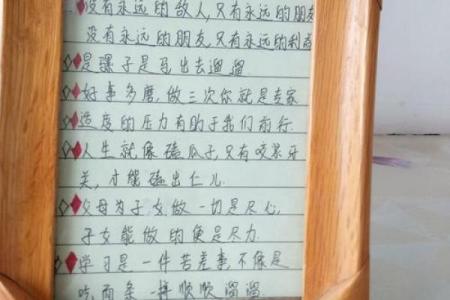 没有永远的敌人,只有永远的朋友
没有永远的朋友,只有永远的利益
是骡子是马出去遛遛
好事多磨,做三次你就是专家
适度的压力有助于我们前行.
人生就像磕瓜子,只有咬紧牙
关,才能磕出仁儿.
父母为子女做一切是尽心,
子女能做的便是尽力.
学习是一件苦差事,不像是
吃面条一样顺顺遛遛